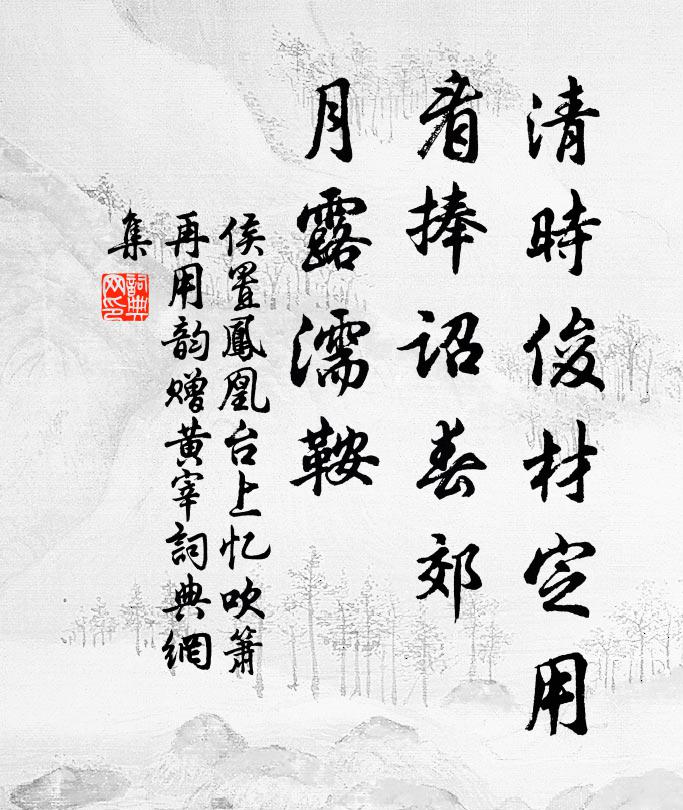 清時俊材定用
看捧詔春郊
月露濡鞍
侯置鳳凰台上忆吹簫
再用韵赠黄宰詞典網
集
詞典
网印